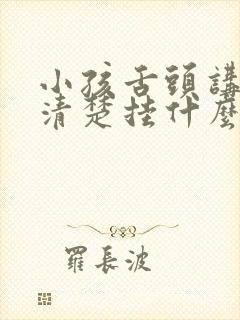 小孩舌頭講
清楚挂什麼
羅長波